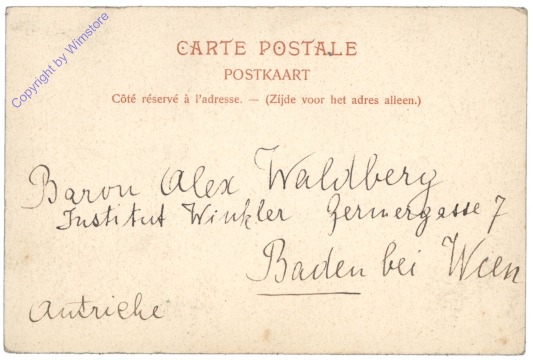 CARTE POSTALE
POSTKAART
Côté réservé à l'adresse. — (Zijde voor het adres alleen.)
Baron Alex Waldberg
Institut Winkler Germergasse 7
Baden bei Wien
Autriche
Copyright by Wimstore